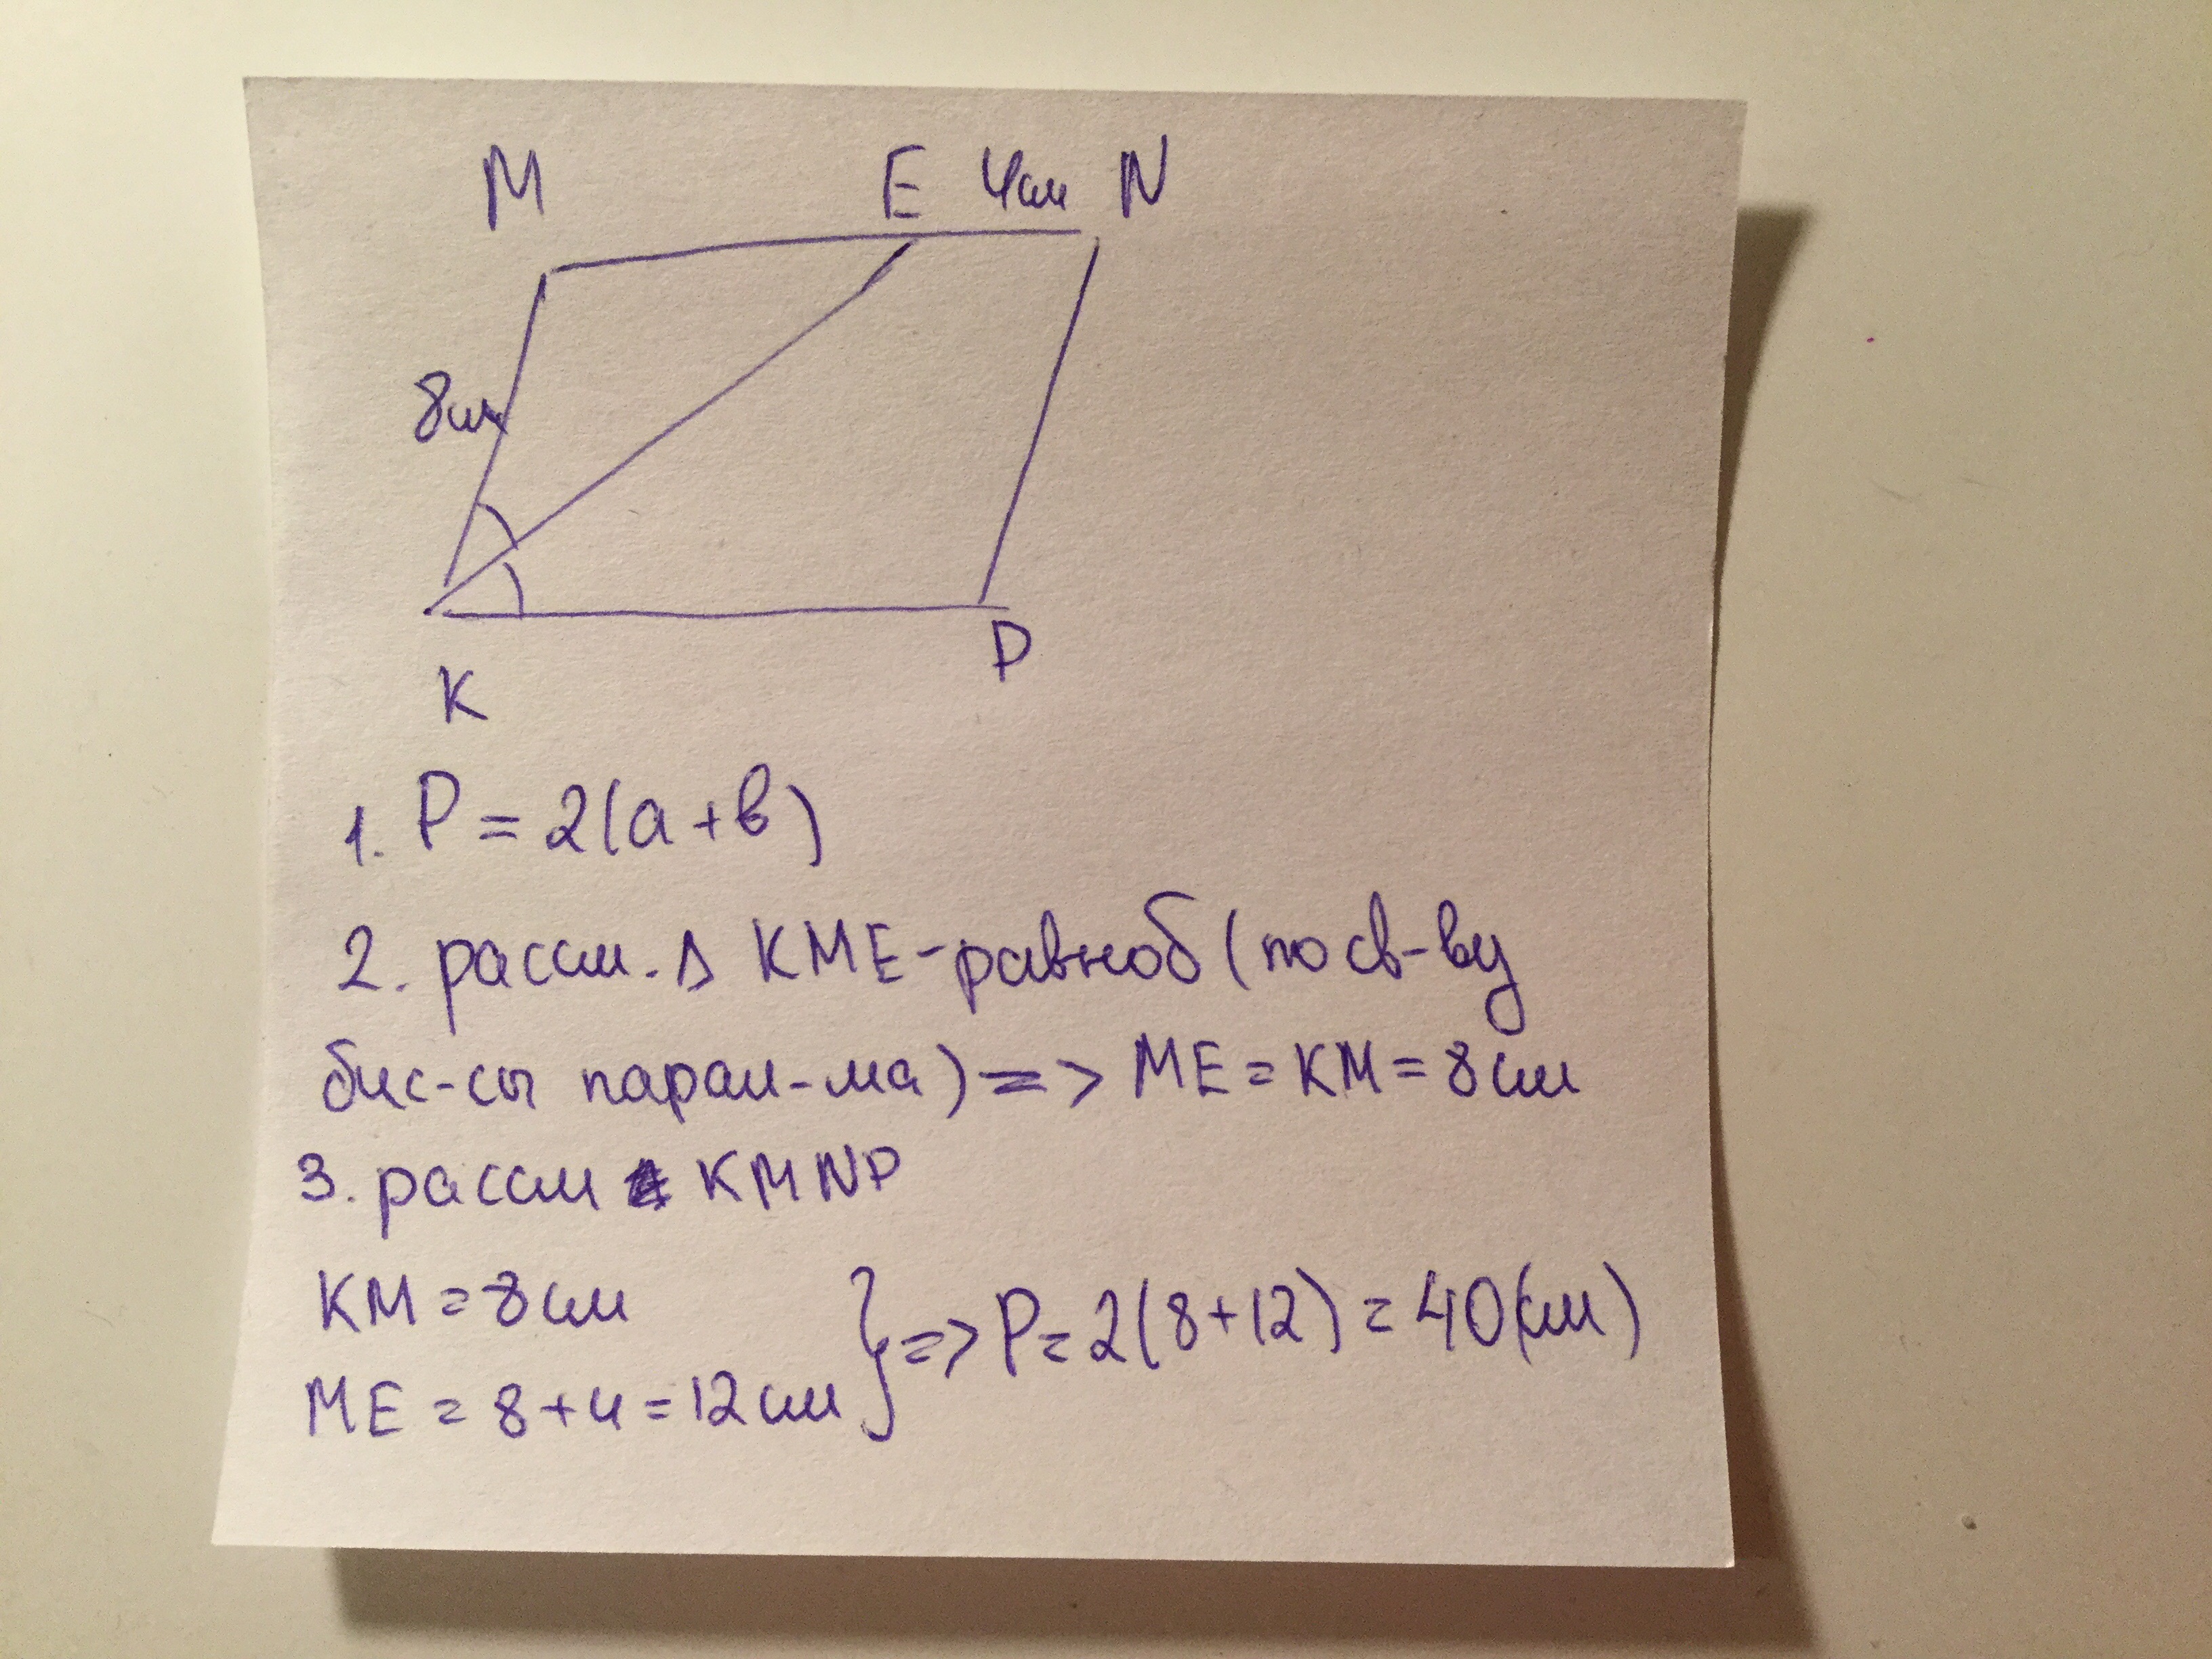 M E 4см N
8см
K P
1. P = 2(a+в)
2. рассм. Δ KME-равноб (по св-ву
бис-сы парал-ма) => ME = KM = 8см
3. рассм KMNP
KM = 8см
ME = 8+4=12см } => P = 2(8+12) = 40(см)